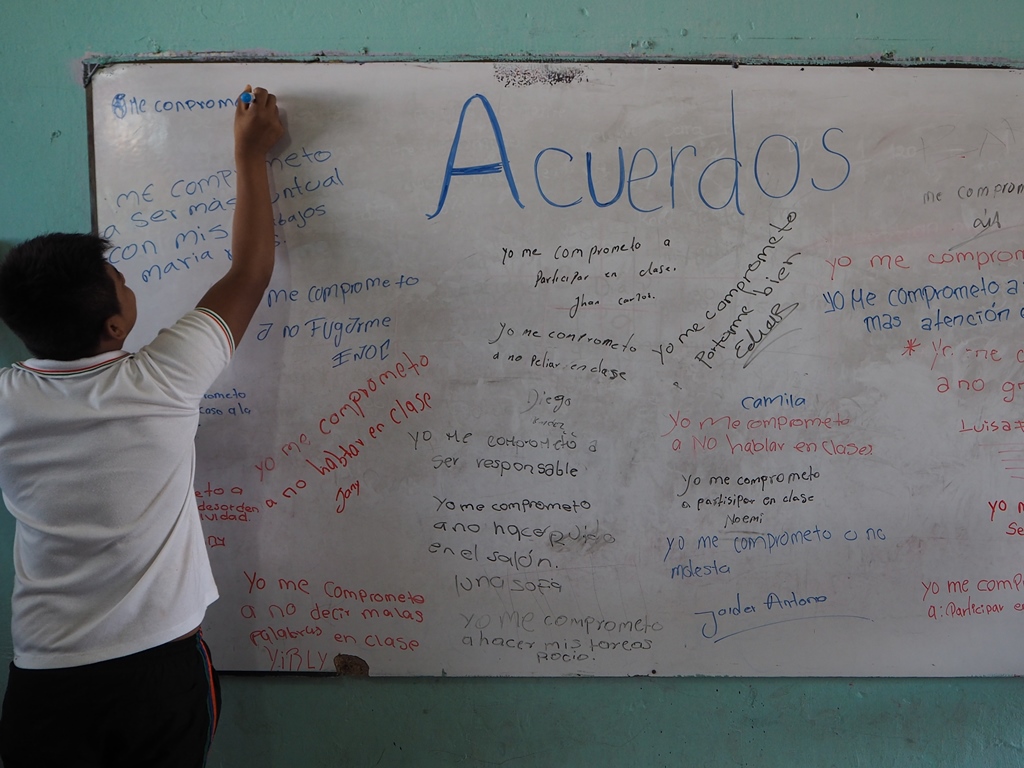 Acuerdos
Me comprom
me comp meto
a ser más ntual
con mis bajos
maria
me comprometo
a no Fugarme
ENOC
yo me comprometo
a no hablar en clase
Jany
desorden
Yo me comprometo
a no decir malas
palabras en clase
YiRLY
yo me comprometo a
Participar en clase.
Jhan carlos.
yo me comprometo
a no Peliar en clase
Diego
yo me comprometo a
ser responsable
Yo me comprometo
a no hacer Ruido
en el salón.
luna sofia
yo me comprometo
a hacer mis tareas
Rocio.
yo me comprometo
a Portarme bien
camila
Yo me comprometo
a NO hablar en clases
yo me comprometo
a partisipar en clase
Noemi
yo me comprometo a no
molesta
Jaider Antonio
me comprom
yo me comprom
yo Me comprometo a
mas atención
* me
a no gr
Luisa F
yo m
Se
yo me comp
a: Participar en